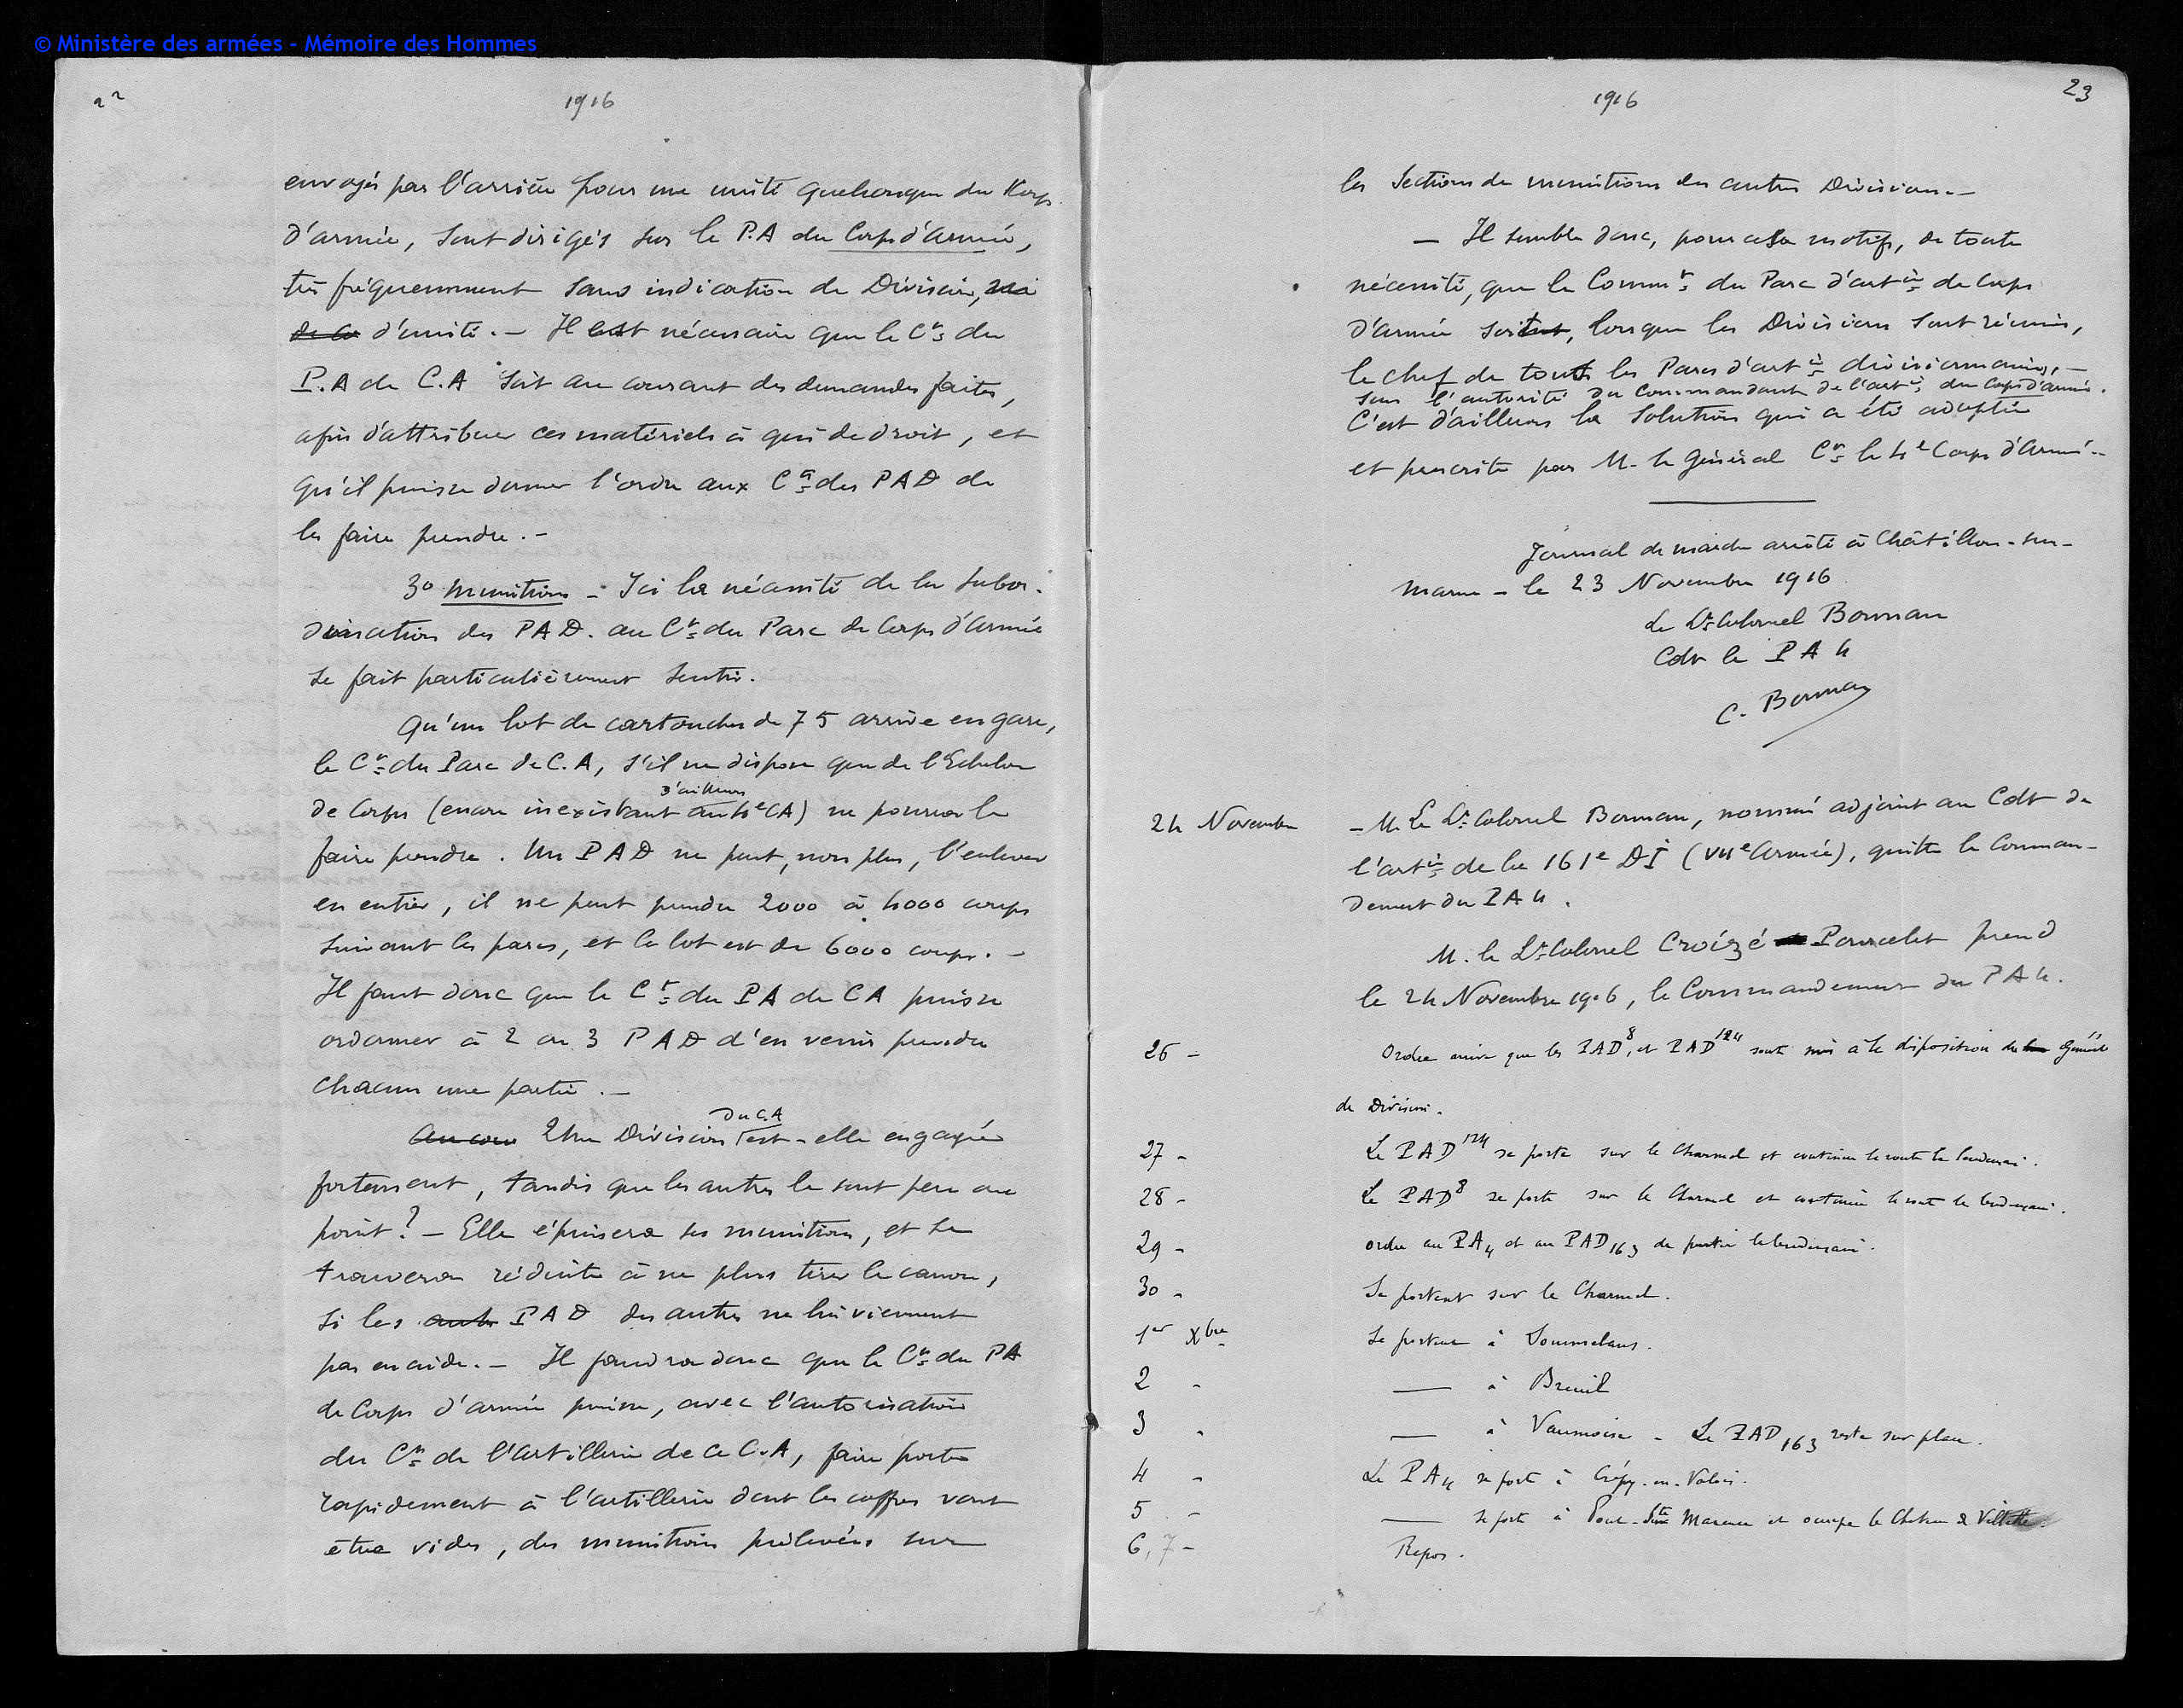 © Ministère des armées - Mémoire des Hommes
22
1916
envoyés par l'arrière pour une unité quelconque du Korps
d'armée, sont dirigés sur le P.A du Corps d'Armée,
très fréquemment sans indication de Division, ni
de Co d'unité. - Il est nécessaire que le Ct du
P.A de C.A soit au courant des demandes faites,
afin d'attribuer ces matériels à qui de droit, et
qu'il puisse donner l'ordre aux Cts des PAD de
les faire prendre. -
3o Munitions - Ici la nécessité de la subor-
dination des PAD. au Ct du Parc de Corps d'Armée
se fait particulièrement sentir.
Qu'un lot de cartouches de 75 arrive en gare,
le Ct du Parc de C.A, s'il ne dispose que de l'Echelon
d'ailleurs
de Corps (encore inexistant au 4e CA) ne pourra le
faire prendre. Un PAD ne peut, non plus, l'enlever
en entier, il ne peut prendre 2000 à 4000 coups
suivant les parcs, et le lot est de 6000 coups. -
Il faut donc que le Ct du PA de CA puisse
ordonner à 2 ou 3 PAD d'en venir prendre
chacun une partie. -
du C.A
Au cou Une Division est-elle engagée
fortement, tandis que les autres le sont peu ou
point? - Elle épuisera ses munitions, et se
trouvera réduite à ne plus tirer le canon,
si les autr PAD des autres ne lui viennent
pas en aide. - Il faudra donc que le Ct du PA
de Corps d'armée puisse, avec l'autorisation
du Ct de l'artillerie de ce C.A, faire porter
rapidement à l'artillerie dont les coffres vont
être vides, des munitions prélevées sur
23
1916
les Sections de munitions des autres Divisions. -
- Il semble donc, pour ces motifs, de toute
nécessité, que le Commt du Parc d'artie de Corps
d'Armée soit, lorsque les Divisions sont réunies,
le chef de tous les Parcs d'artie divisionnaires, -
sous l'autorité du Commandant de l'artie du Corps d'armée.
C'est d'ailleurs la solution qui a été adoptée
et prescrite par M. le Général Ct le 4e Corps d'Armée -
Journal de marche arrêté à Châtillon-sur-
Marne - le 23 Novembre 1916
Le Lt Colonel Bonnan
Cdt le PA 4
C. Bonnan
24 Novembre - M. Le Lt Colonel Bonnan, nommé adjoint au Cdt de
l'artie de la 161e DI (VIIe Armée), quitte le Comman-
dement du PA 4.
M. le Lt Colonel Croizé Pourcelet prend
le 24 Novembre 1916, le Commandement du PA 4.
26 - Ordre arrive que les PAD8, et PAD124 sont mis à la disposition du Général
de Division.
27 - Le PAD124 se porte sur le Charmel et continue la route le lendemain.
28 - Le PAD8 se porte sur le Charmel et continue la route le lendemain.
29 - ordre au PA4 et au PAD163 de partir le lendemain.
30 - Se portent sur le Charmel.
1er Xbre Se portent à Sommelans.
2 - à Breuil
3 - à Vaumoise - Le PAD163 reste sur place.
4 - Le PA4 se porte à Crépy-en-Valois.
5 - se porte à Pont-Ste Maxence et occupe le Chateau de Villette.
6, 7 - Repos.